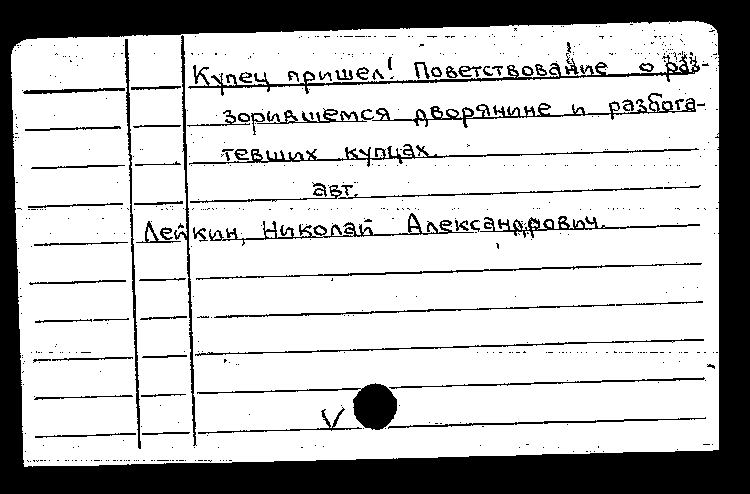 Купец пришел! Поветствование о раз-
зорившемся дворянине и разбога-
тевших купцах.
авт.
Лейкин, Николай Александрович.
V